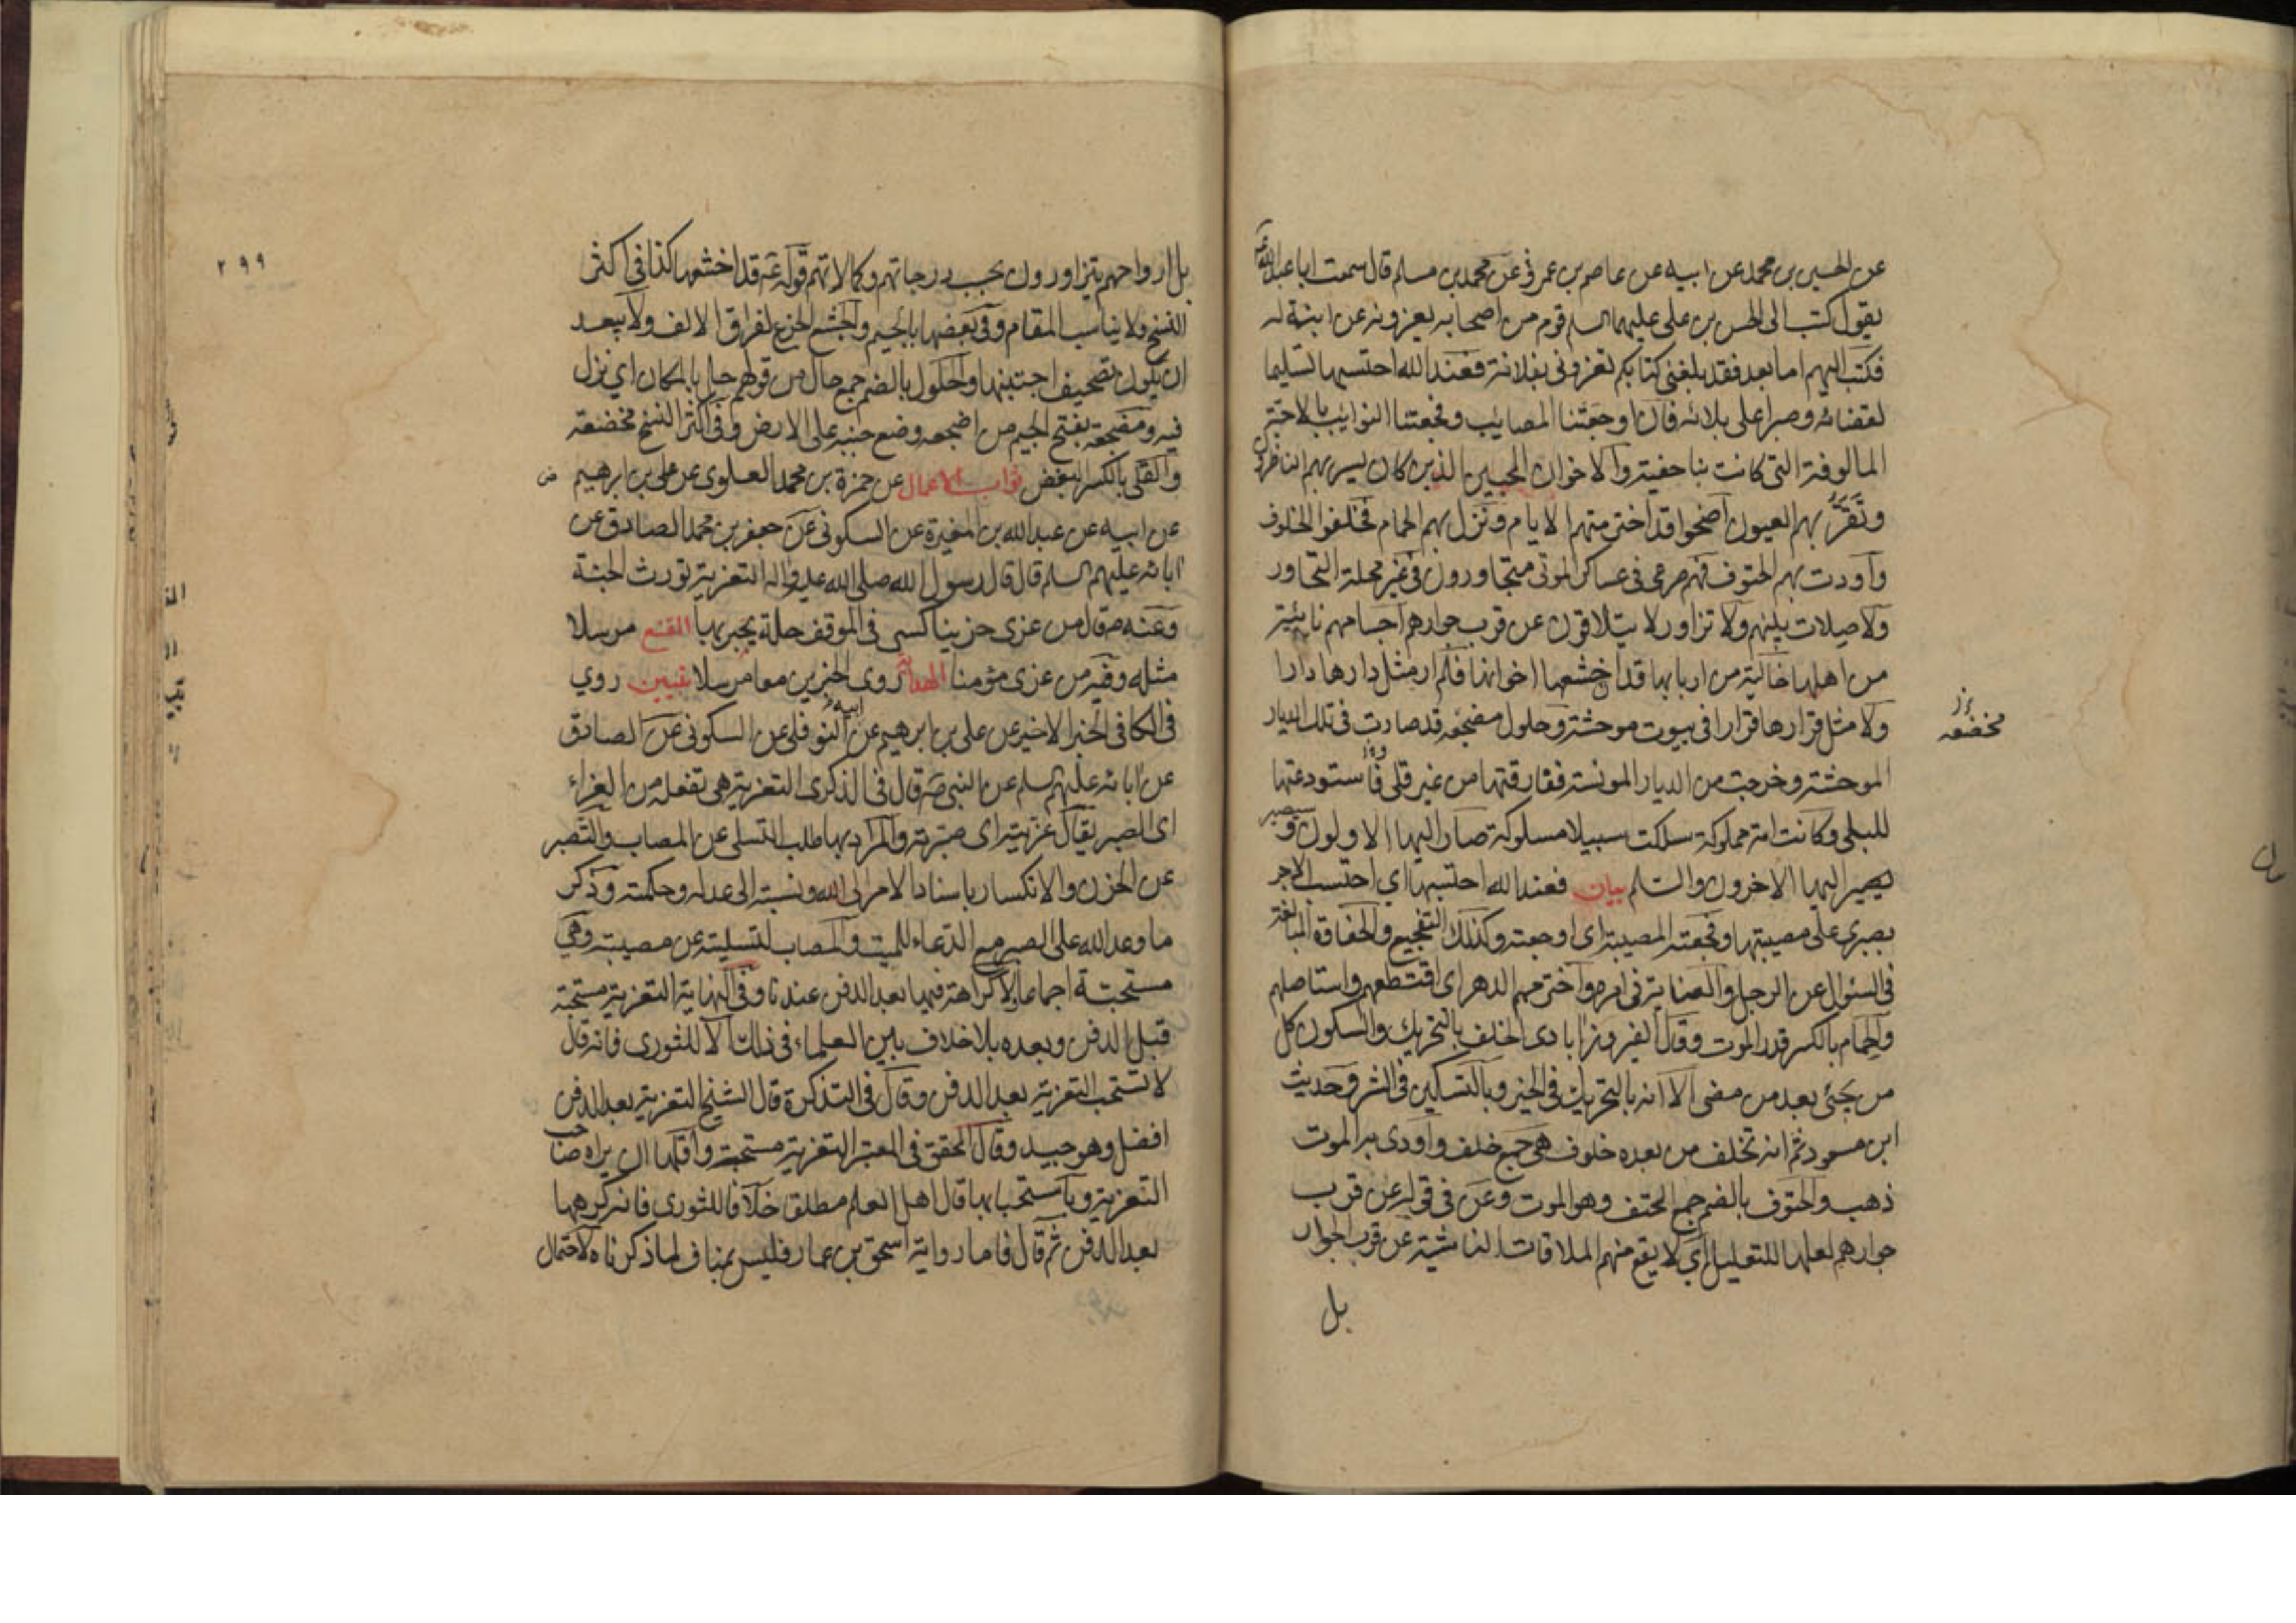 عن الحسين بن محمد عن ابيه عن عاصم بن عمر في عن محمد بن مسلم قال سمعت ابا عبد الله ع
يقول كتب الى الحسن بن علي عليهما السلم قوم من اصحابه يعزونه عن ابنة له
فكتب اليهم اما بعد فقد بلغني كتابكم تعزوني بفلانة فعند الله احتسبها تسليما
لقضائه وصبرا على بلائه فان اوجعتنا المصايب وفجعتنا النوايب بالاحبة
المالوفة التي كانت بنا حفية والاخوان المحبين الذين كان يسر بهم الناظرون
وتقر بهم العيون اضحوا قد اخترمتهم الايام ونزل بهم الحمام فخلفوا الخلوف
واودت بهم الحتوف فهم صرعى في عساكر الموتى متجاورون في غير محلة التجاور
ولا صلات بينهم ولا تزاور ولا يتلاقون عن قرب جوارهم اجسامهم نائية
من اهلها خالية من اربابها قد اخشعها اخوانها فلم ار مثل دارها دارا
ولا مثل قرارها قرارا في بيوت موحشة وحلول مضجعه قد صارت في تلك الديار
مخضعه
الموحشة وخرجت من الديار المونسة ففارقتها من غير قلى فاستودعتها
للبلى وكانت امة مملوكة سلكت سبيلا مسلوكة صار اليها الاولون و
يصير اليها الاخرون والسلم بيان فعند الله احتسبها اي احتسب الاجر
بصبري على مصيبتها وفجعته المصيبة اي اوجعته وكذلك التفجيع والحفاوة المبالغة
في السئوال عن الرجل والعناية في امره واخترمهم الدهر اي اقتطعهم واستاصلهم
والحمام بالكسر قدر الموت وقال الفيروزابادي الخلف بالتحريك والسكون كل
من يجئي بعد من مضى الا انه بالتحريك في الخير وبالتسكين في الشر وحديث
ابن مسعود ثم انه تخلف من بعده خلوف هي جمع خلف واودى به الموت
ذهب والحتوف بالضم جمع الحتف وهو الموت وعن في قوله عن قرب
جوارهم لعلها للتعليل اي لا يقع منهم الملاقات الناشية عن قرب الجوار
بل
٢٩٩
بل ارواحهم يتزاورون بحسب درجاتهم وكمالاتهم قوله ع قد اخشعها كذا في اكثر
النسخ ولا يناسب المقام وفي بعضها بالجيم والجشع الجزع لفراق الالف ولا يبعد
ان يكون تصحيف اجتنبها والحلول بالضم جمع حال من قولهم حل بالمكان اي نزل
فيه ومضجعة بفتح الجيم من اضجعه وضع جنبه على الارض وفي اكثر النسخ مخضعة
والقلى بالكسر البغض ثواب الاعمال عن حمزة بن محمد العلوي عن علي بن ابرهيم
عن ابيه عن عبد الله بن المغيرة عن السكوني عن جعفر بن محمد الصادق عن
ابائه عليهم السلم قال قال رسول الله صلى الله عليه واله التعزية تورث الجنة
وعنه ص قال من عزى حزينا كسي في الموقف حلة يحبر بها المقنع مرسلا
مثله وفيه من عزى مؤمنا الهداية روى الخبرين معا مرسلا تبيين روي
في الكافي الخبر الاخير عن علي بن ابرهيم عن ابيه عن النوفلي عن السكوني عن الصادق
عن ابائه عليهم السلم عن النبي ص قال في الذكرى التعزية هي تفعلة من العزاء
اي الصبر يقال عزيته اي صبرته والمراد بها طلب التسلي عن المصاب والتصبر
عن الحزن والانكسار باسناد الامر الى الله ونسبته الى عدله وحكمته وذكر
ما وعد الله على الصبر مع الدعاء للميت والمصاب لتسليته عن مصيبته وهي
مستحبة اجماعا ولا كراهة فيها بعد الدفن عندنا وفي النهاية التعزية مستحبة
قبل الدفن وبعده بلا خلاف بين العلماء في ذلك الا للثوري فانه قال
لا تستحب التعزية بعد الدفن وقال في التذكرة قال الشيخ التعزية بعد الدفن
افضل وهو جيد وقال المحقق في المعتبر التعزية مستحبة واقلها ان يراه صاحب
التعزية وباستحبابها قال اهل العلم مطلقا خلافا للثوري فانه كرهها
بعد الدفن ثم قال فاما رواية اسحق بن عمار فليس بمناف لما ذكرناه لاحتمال